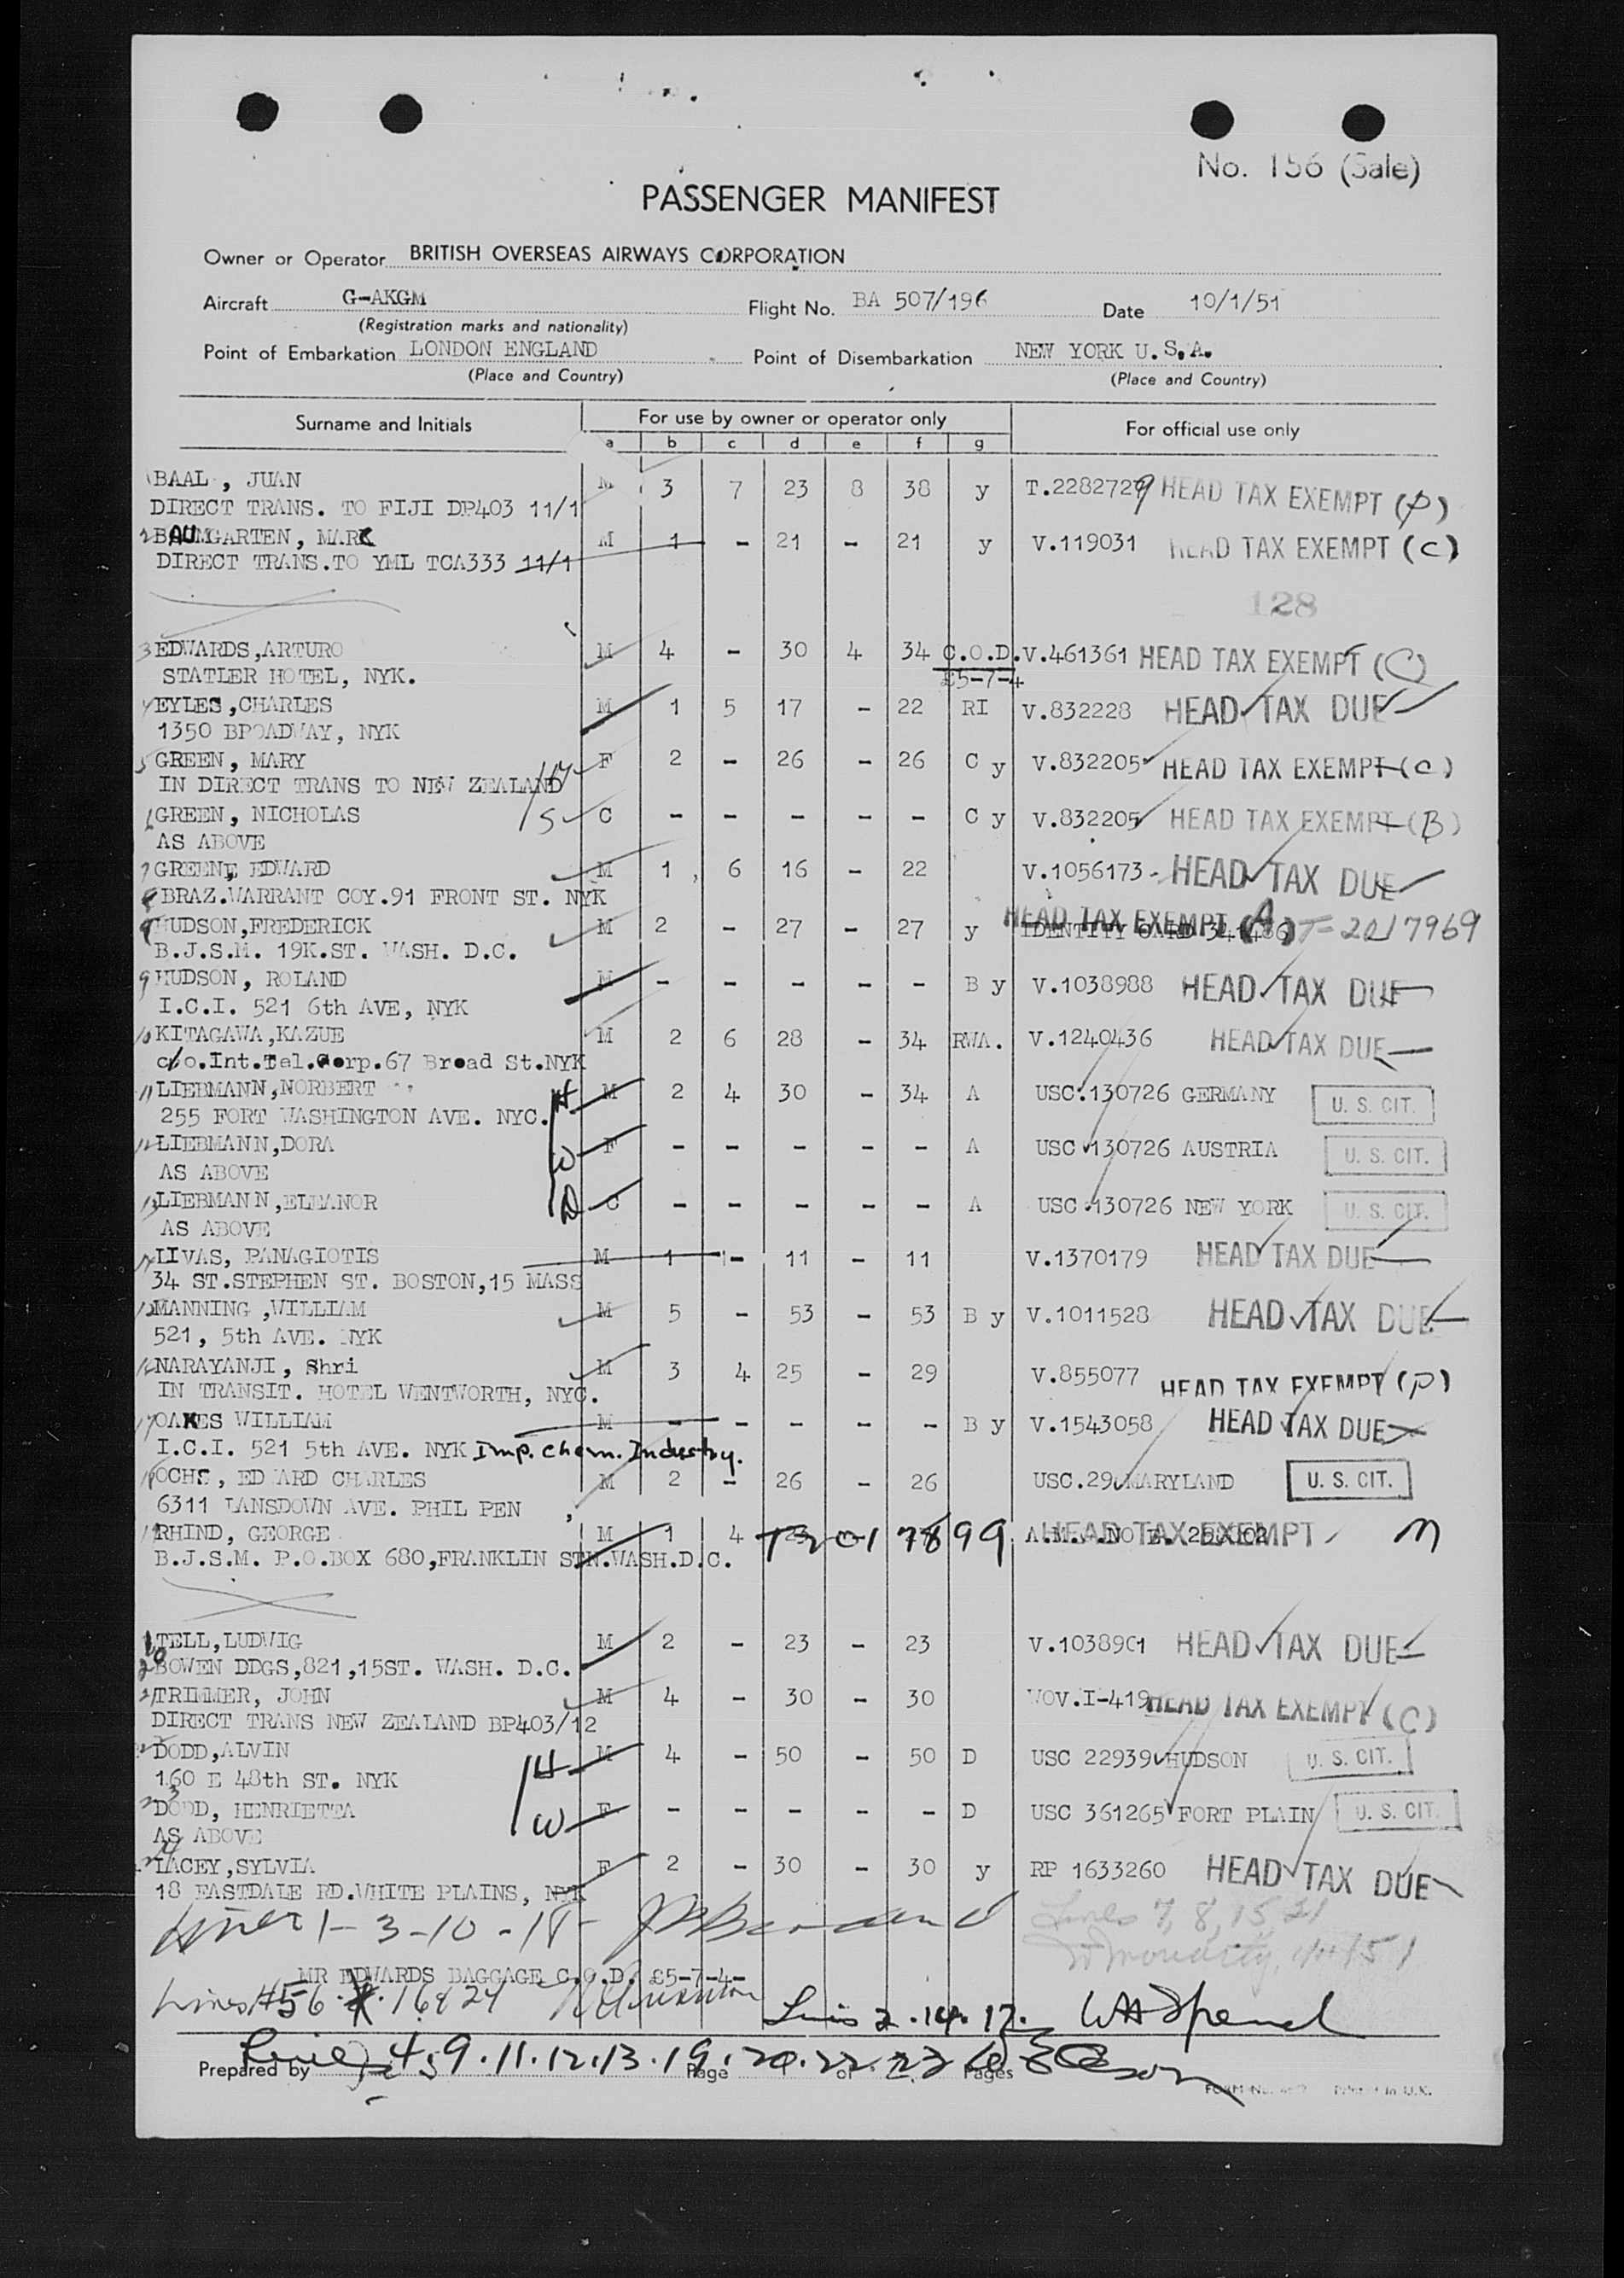 No. 156 (Sale)
PASSENGER MANIFEST
Owner or Operator BRITISH OVERSEAS AIRWAYS CORPORATION
Aircraft G-AKGM Flight No. BA 507/196 Date 10/1/51
(Registration marks and nationality)
Point of Embarkation LONDON ENGLAND Point of Disembarkation NEW YORK U.S.A.
(Place and Country) (Place and Country)
Surname and Initials For use by owner or operator only For official use only
a b c d e f g
1 BAAL, JUAN M 3 7 23 8 38 y T.2282729 HEAD TAX EXEMPT (P)
DIRECT TRANS. TO FIJI DP403 11/1
2 BAUMGARTEN, MARK M 1 - 21 - 21 y V.119031 HEAD TAX EXEMPT (C)
DIRECT TRANS.TO YML TCA333 11/1
128
3 EDWARDS,ARTURO M 4 - 30 4 34 C.O.D. V.461361 HEAD TAX EXEMPT (C)
STATLER HOTEL, NYK. £5-7-4
4 EYLES,CHARLES M 1 5 17 - 22 RI V.832228 HEAD TAX DUE
1350 BROADWAY, NYK
5 GREEN, MARY F 2 - 26 - 26 C y V.832205 HEAD TAX EXEMPT (C)
IN DIRECT TRANS TO NEW ZEALAND
6 GREEN, NICHOLAS S C - - - - - C y V.832205 HEAD TAX EXEMPT (B)
AS ABOVE
7 GREENE, EDWARD M 1 6 16 - 22 V.1056173 HEAD TAX DUE
BRAZ.WARRANT COY.91 FRONT ST. NYK
HUDSON,FREDERICK M 2 - 27 - 27 y IDENTITY CARD HEAD TAX EXEMPT (A) T-2017969
B.J.S.M. 19K.ST. WASH. D.C.
9 HUDSON, ROLAND M - - - - - B y V.1038988 HEAD TAX DUE
I.C.I. 521 6th AVE, NYK
10 KITAGAWA,KAZUE M 2 6 28 - 34 RWA. V.1240436 HEAD TAX DUE
c/o.Int.Tel.Corp.67 Broad St.NYK
11 LIEBMANN,NORBERT H M 2 4 30 - 34 A USC.130726 GERMANY U. S. CIT.
255 FORT WASHINGTON AVE. NYC.
12 LIEBMANN,DORA W F - - - - - A USC 130726 AUSTRIA U. S. CIT.
AS ABOVE
13 LIEBMANN,ELEANOR D C - - - - - A USC 130726 NEW YORK U. S. CIT.
AS ABOVE
14 LIVAS, PANAGIOTIS M 1 - 11 - 11 V.1370179 HEAD TAX DUE
34 ST.STEPHEN ST. BOSTON,15 MASS
MANNING ,WILLIAM M 5 - 53 - 53 B y V.1011528 HEAD TAX DUE
521, 5th AVE. NYK
16 NARAYANJI, Shri M 3 4 25 - 29 V.855077 HEAD TAX EXEMPT (P)
IN TRANSIT. HOTEL WENTWORTH, NYC.
17 OAKES WILLIAM M - - - - - B y V.1543058 HEAD TAX DUE
I.C.I. 521 5th AVE. NYK Imp. Chem. Industry.
OCHS, EDWARD CHARLES M 2 - 26 - 26 USC.29 MARYLAND U. S. CIT.
6311 LANSDOWN AVE. PHIL PEN
RHIND, GEORGE M 1 4 T2017899 HEAD TAX EXEMPT M
B.J.S.M. P.O.BOX 680,FRANKLIN STN.WASH.D.C.
20 TELL,LUDWIG M 2 - 23 - 23 V.1038901 HEAD TAX DUE
BOWEN DDGS,821,15ST. WASH. D.C.
21 TRIMMER, JOHN M 4 - 30 - 30 WOV.I-419 HEAD TAX EXEMPT (C)
DIRECT TRANS NEW ZEALAND BP403/12
DODD,ALVIN H M 4 - 50 - 50 D USC 22939 HUDSON U. S. CIT.
160 E 48th ST. NYK
23 DODD, HENRIETTA W F - - - - - D USC 361265 FORT PLAIN U. S. CIT.
AS ABOVE
24 LACEY,SYLVIA F 2 - 30 - 30 y RP 1633260 HEAD TAX DUE
18 EASTDALE RD.WHITE PLAINS, NYK
Lines 1-3-10-18
Lines 7, 8, 15, 21
MR EDWARDS BAGGAGE C.O.D. £5-7-4-
Lines 2.14.17.
Prepared by Lines 4.9.11.12.13.19.20.22.23 Page of Pages